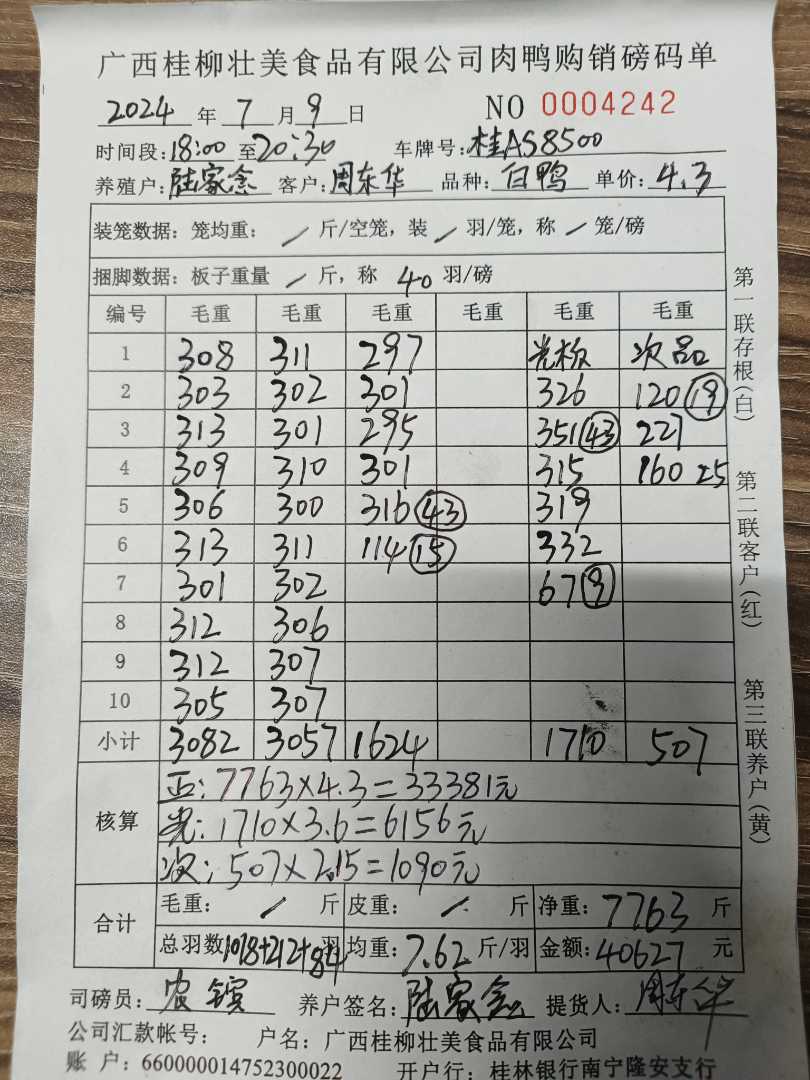 广西桂柳壮美食品有限公司肉鸭购销磅码单
2024 年 7 月 9 日 NO 0004242
时间段:18:00 至20:30 车牌号:桂AS8500
养殖户:陆家念 客户:周东华 品种:白鸭 单价:4.3
装笼数据: 笼均重: / 斤/空笼, 装 / 羽/笼, 称 / 笼/磅
捆脚数据: 板子重量 / 斤, 称 40 羽/磅
编号 毛重 毛重 毛重 毛重 毛重 毛重
1 308 311 297 光板 次品
2 303 302 301 326 120 19
3 313 301 295 351 43 227
4 309 310 301 315 160 25
5 306 300 316 43 319
6 313 311 114 15 332
7 301 302 67 9
8 312 306
9 312 307
10 305 307
小计 3082 3057 1624 1710 507
核算 正: 7763×4.3=33381元
光: 1710×3.6=6156元
次: 507×2.15=1090元
合计 毛重: / 斤 皮重: / 斤 净重: 7763 斤
总羽数 1018+212+84 羽 均重: 7.62 斤/羽 金额: 40627 元
司磅员: 农镔 养户签名: 陆家念 提货人: 周东华
公司汇款帐号: 户名: 广西桂柳壮美食品有限公司
账 户: 660000014752300022 开户行: 桂林银行南宁隆安支行
第一联存根(白)
第二联客户(红)
第三联养户(黄)